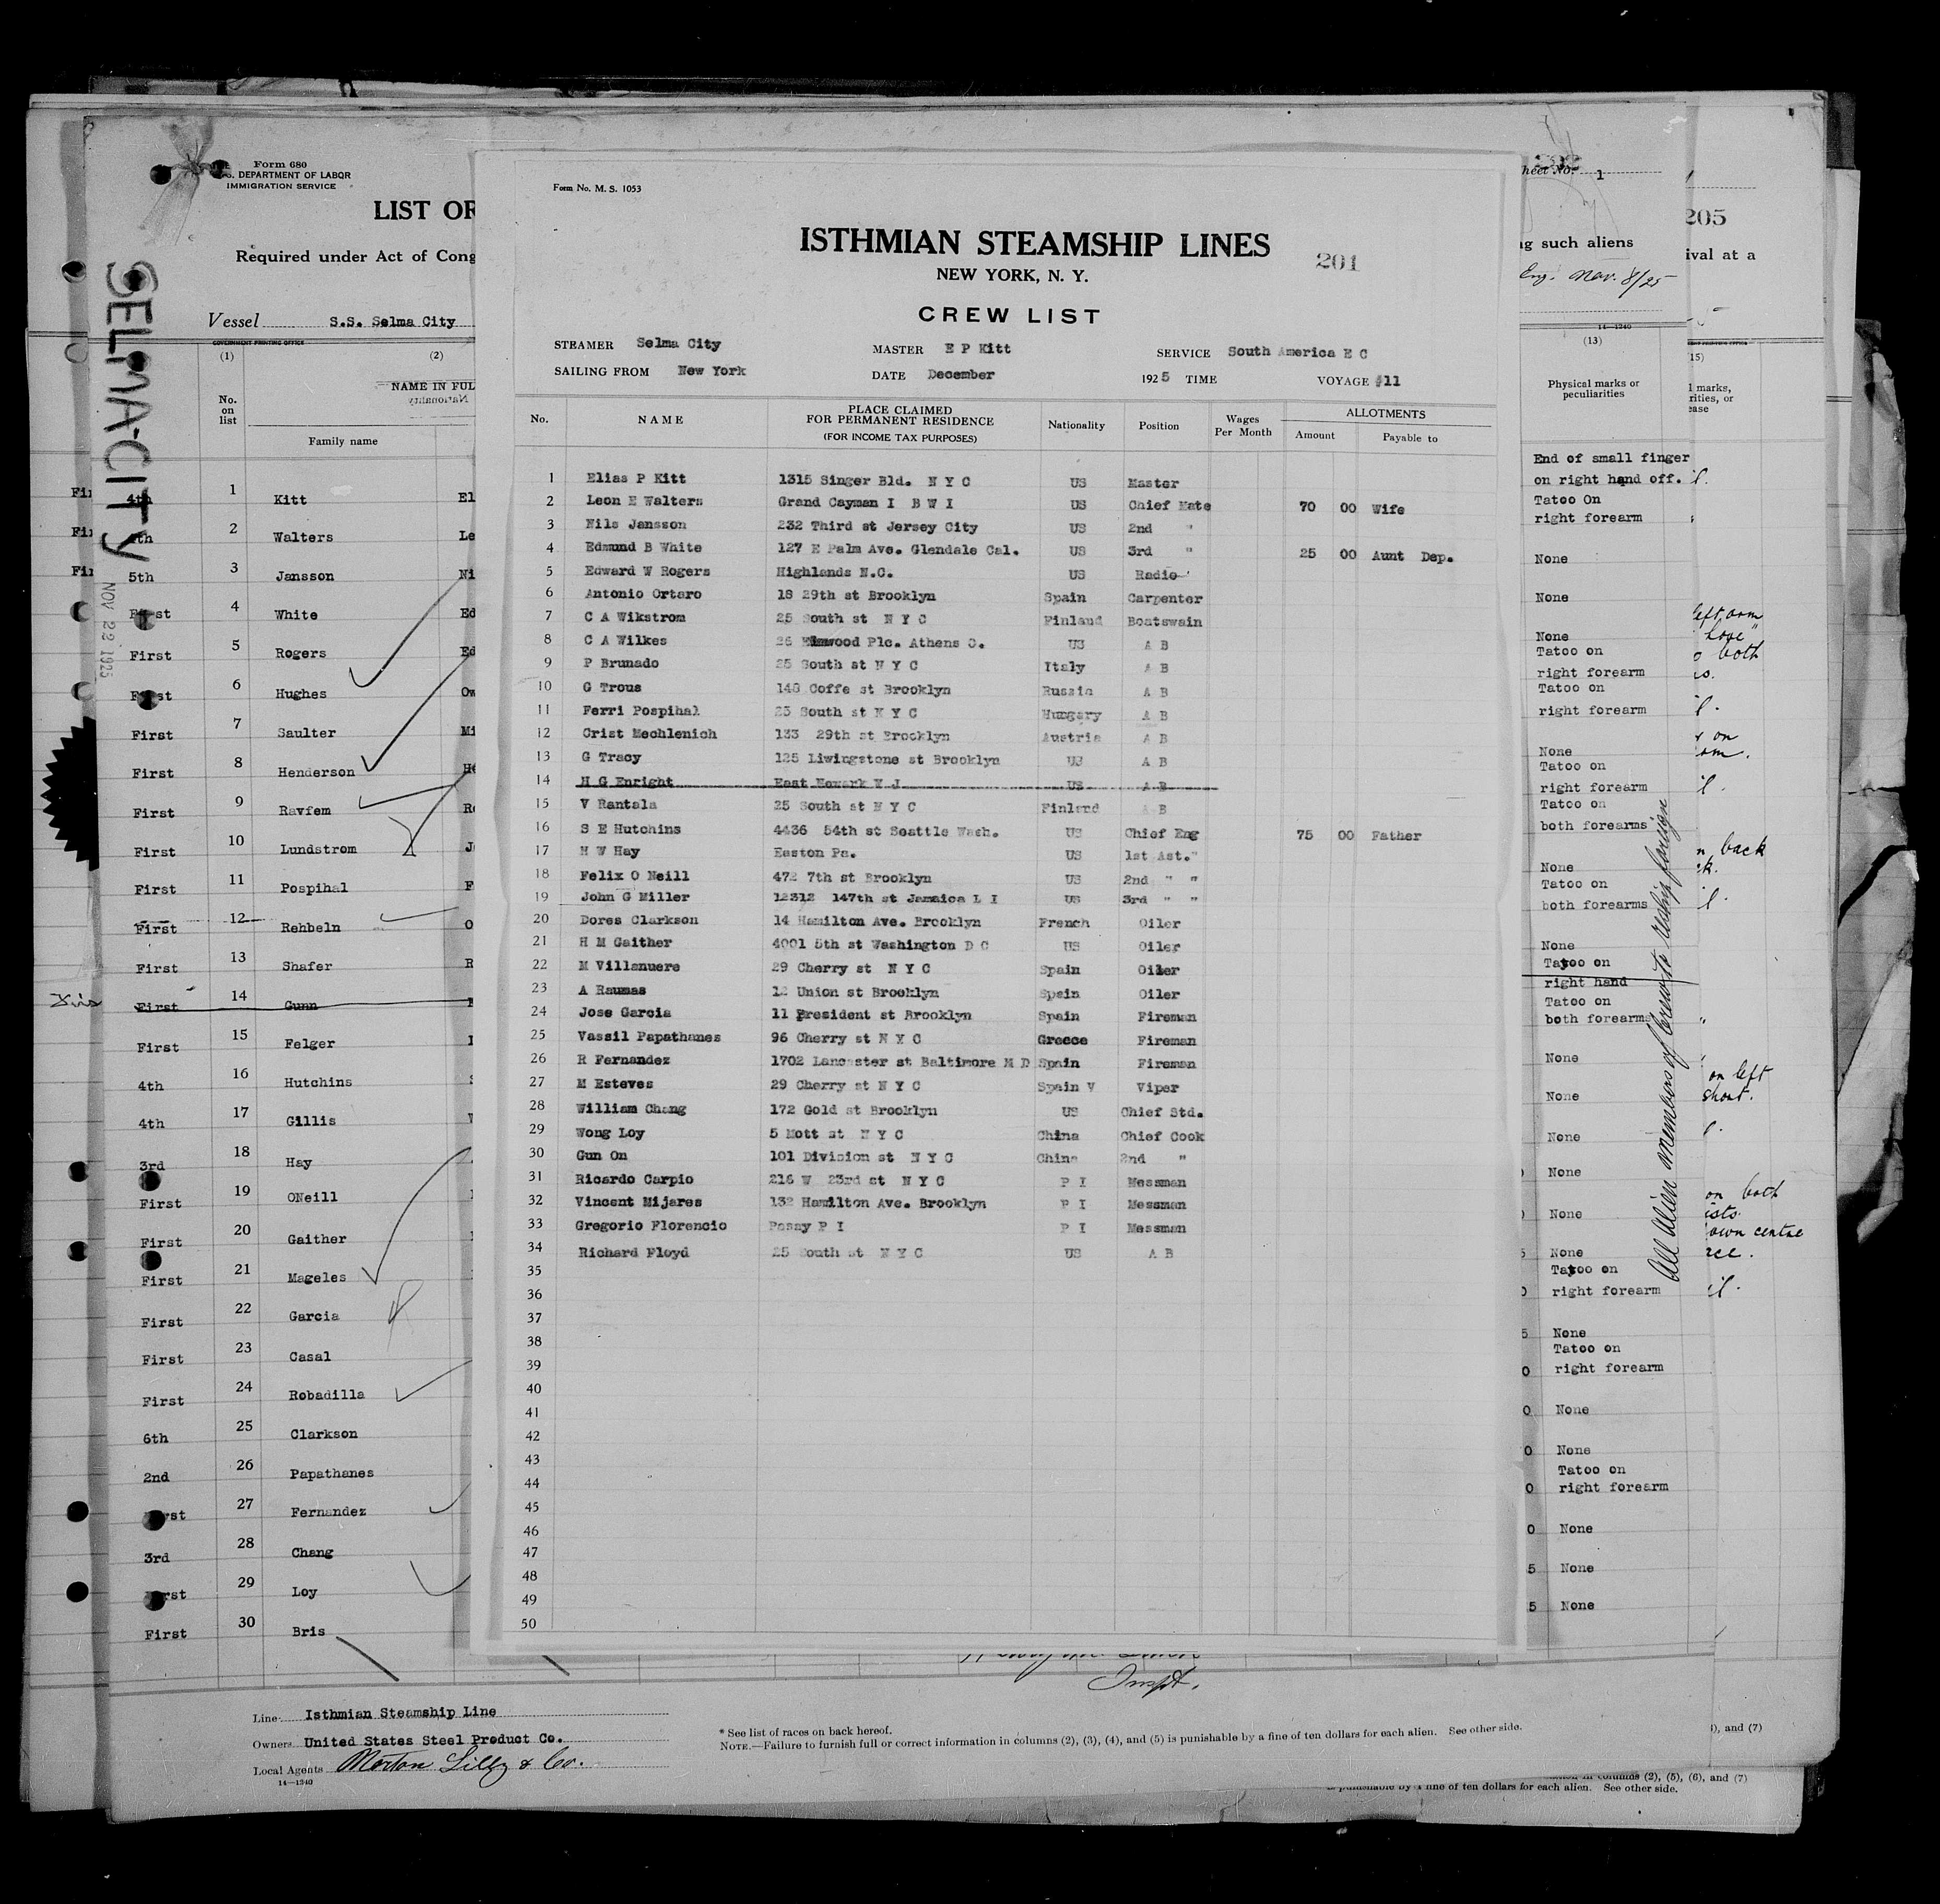 Form 680
DEPARTMENT OF LABOR
IMMIGRATION SERVICE
LIST OF
Required under Act of Cong
Vessel S.S. Selma City
GOVERNMENT PRINTING OFFICE
(1) (2)
No. on list
NAME IN FUL
Family name
SELMA CITY
NOV 22 1925
4th 1 Kitt El
2 Walters Le
5th 3 Jansson Ni
First 4 White Ed
First 5 Rogers Ed
First 6 Hughes Ow
First 7 Saulter Mi
First 8 Henderson
First 9 Ravfem
First 10 Lundstrom
First 11 Pospihal
First 12 Rehbeln
First 13 Shafer
First 14 Gunn
First 15 Felger
4th 16 Hutchins
4th 17 Gillis
3rd 18 Hay
First 19 ONeill
First 20 Gaither
First 21 Mageles
First 22 Garcia
First 23 Casal
First 24 Robadilla
6th 25 Clarkson
2nd 26 Papathanes
First 27 Fernandez
3rd 28 Chang
First 29 Loy
First 30 Bris
Form No. M. S. 1053
ISTHMIAN STEAMSHIP LINES
201
NEW YORK, N. Y.
CREW LIST
STEAMER Selma City MASTER E P Kitt SERVICE South America E C
SAILING FROM New York DATE December 1925 TIME VOYAGE #11
No. NAME PLACE CLAIMED FOR PERMANENT RESIDENCE (FOR INCOME TAX PURPOSES) Nationality Position Wages Per Month ALLOTMENTS Amount Payable to
1 Elias P Kitt 1315 Singer Bld. N Y C US Master
2 Leon E Walters Grand Cayman I B W I US Chief Mate 70 00 Wife
3 Nils Jansson 232 Third st Jersey City US 2nd "
4 Edmund B White 127 E Palm Ave. Glendale Cal. US 3rd " 25 00 Aunt Dep.
5 Edward W Rogers Highlands N.C. US Radio
6 Antonio Ortaro 18 29th st Brooklyn Spain Carpenter
7 C A Wikstrom 25 South st N Y C Finland Boatswain
8 C A Wilkes 26 Elmwood Plc. Athens O. US A B
9 P Brunado 25 South st N Y C Italy A B
10 G Trous 148 Coffe st Brooklyn Russia A B
11 Ferri Pospihal 25 South st N Y C Hungary A B
12 Crist Mechlenich 133 29th st Brooklyn Austria A B
13 G Tracy 125 Liwingstone st Brooklyn US A B
14 H G Enright East Newark N J US A B
15 V Rantala 25 South st N Y C Finland A B
16 S E Hutchins 4436 54th st Seattle Wash. US Chief Eng 75 00 Father
17 H W Hay Easton Pa. US 1st Ast."
18 Felix O Neill 472 7th st Brooklyn US 2nd " "
19 John G Miller 12312 147th st Jamaica L I US 3rd " "
20 Dores Clarkson 14 Hamilton Ave. Brooklyn French Oiler
21 H M Gaither 4001 5th st Washington D C US Oiler
22 M Villanuere 29 Cherry st N Y C Spain Oiler
23 A Raumas 12 Union st Brooklyn Spain Oiler
24 Jose Garcia 11 President st Brooklyn Spain Fireman
25 Vassil Papathanes 96 Cherry st N Y C Greece Fireman
26 R Fernandez 1702 Lancaster st Baltimore M D Spain Fireman
27 M Esteves 29 Cherry st N Y C Spain V Viper
28 William Chang 172 Gold st Brooklyn US Chief Std.
29 Wong Loy 5 Mott st N Y C China Chief Cook
30 Gun On 101 Division st N Y C China 2nd "
31 Ricardo Carpio 216 W 23rd st N Y C P I Messman
32 Vincent Mijares 132 Hamilton Ave. Brooklyn P I Messman
33 Gregorio Florencio Pasay P I P I Messman
34 Richard Floyd 25 South st N Y C US A B
35
36
37
38
39
40
41
42
43
44
45
46
47
48
49
50
heet No. 1
ng such aliens
Eng. Nov. 8/25
14-1240
(13)
Physical marks or peculiarities
End of small finger
on right hand off.
Tatoo On
right forearm
None
None
None
Tatoo on
right forearm
Tatoo on
right forearm
None
Tatoo on
right forearm
Tatoo on
both forearms
None
Tatoo on
both forearms
None
Tatoo on
right hand
Tatoo on
both forearms
None
None
None
None
None
None
Tatoo on
right forearm
None
Tatoo on
right forearm
None
None
Tatoo on
right forearm
None
None
None
All alien members of crew to reship foreign
205
ival at a
15)
marks,
rities, or
ease
left arm
Love"
both
on
back
on left
on both
own centre
Inspt.
Line Isthmian Steamship Line
Owners United States Steel Product Co.
Local Agents Morton Lilly & Co.
14-1240
* See list of races on back hereof.
NOTE.—Failure to furnish full or correct information in columns (2), (3), (4), and (5) is punishable by a fine of ten dollars for each alien. See other side.
), and (7)
columns (2), (5), (6), and (7)
is punishable by a fine of ten dollars for each alien. See other side.